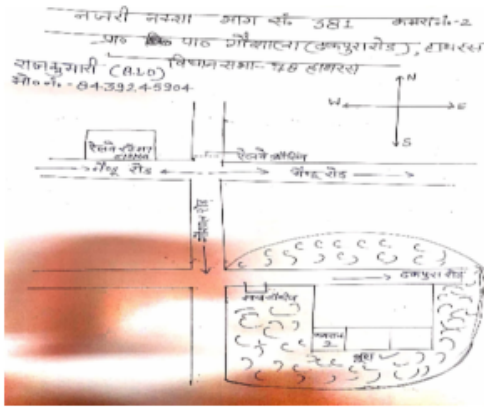 नजरी नक्शा भाग सं० 381 कमरा नं०-2
प्रा० पा० गौशाला (ढकपुरा रोड), हाथरस
राजकुमारी (BLO) विधान सभा- 78 हाथरस
मो० नं०- 8439245904
N
W E
S
रेलवे स्टेशन
रेलवे क्रॉसिंग
मैण्डू रोड मैण्डू रोड
गौशाला रोड
ढकपुरा रोड
कमरा नं०
2